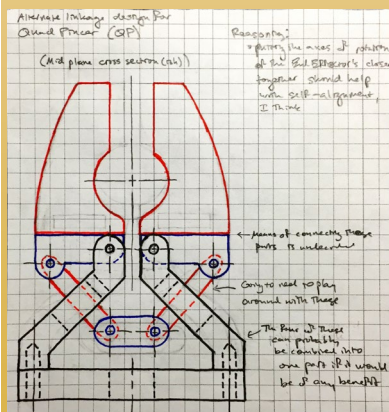 Alternate linkage design for
Quad Pincer (QP)
(Mid plane cross section (ish))
Reasoning:
• putting the axes of rotation
of the End Effector's closer
together should help
with self-alignment,
I think
Means of connecting these
parts is unclear
Going to need to play
around with these
The four of these
can probably
be combined into
one part if it would
be of any benefit